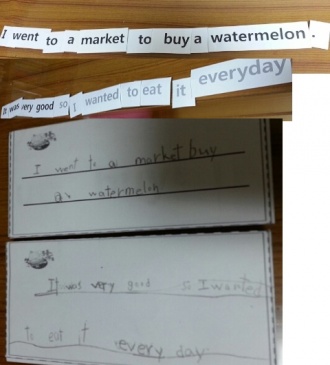 I went to a market to buy a watermelon.
It was very good so I wanted to eat it everyday
I went to a market buy
a watermelon
It was very good so I wanted
to eat it every day